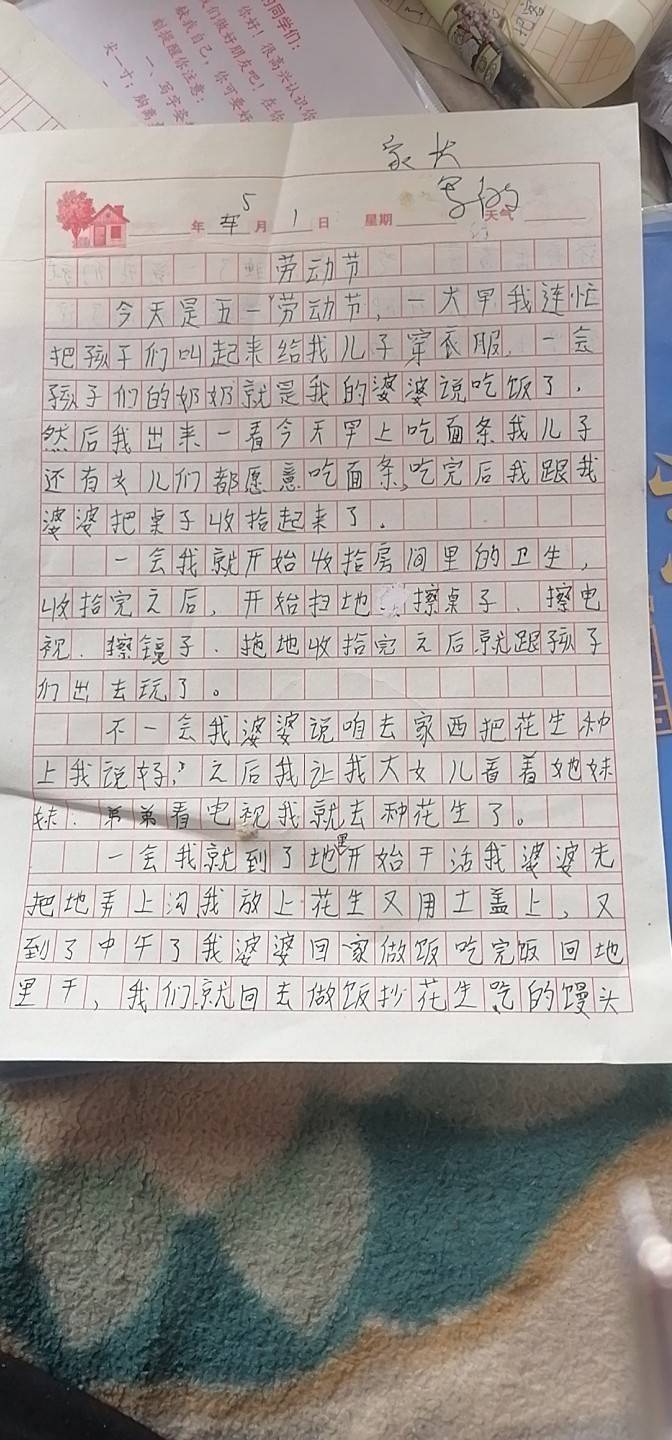 的同学们：
你好！很高兴认识你
我们做好朋友吧！在你
献我自己，你可要好
别提醒你注意：
一、写字姿
尖一寸；胸离
家长
写的
年 5月 1日 星期 天气
劳动节
今天是五一劳动节，一大早我连忙
把孩子们叫起来给我儿子穿衣服．一会
孩子们的奶奶就是我的婆婆说吃饭了．
然后我出来一看今天早上吃面条我儿子
还有女儿们都愿意吃面条，吃完后我跟我
婆婆把桌子收拾起来了。
一会我就开始收拾房间里的卫生，
收拾完之后，开始扫地 擦桌子．擦电
视．擦镜子．拖地收拾完之后就跟孩子
们出去玩了。
不一会我婆婆说咱去家西把花生种
上我说好，之后我让我大女儿看着她妹
妹．弟弟看电视我就去种花生了。
一会我就到了地里开始干活我婆婆先
把地弄上沟我放上花生又用土盖上，又
到了中午了我婆婆回家做饭吃完饭回地
里干，我们就回去做饭抄花生吃的馒头